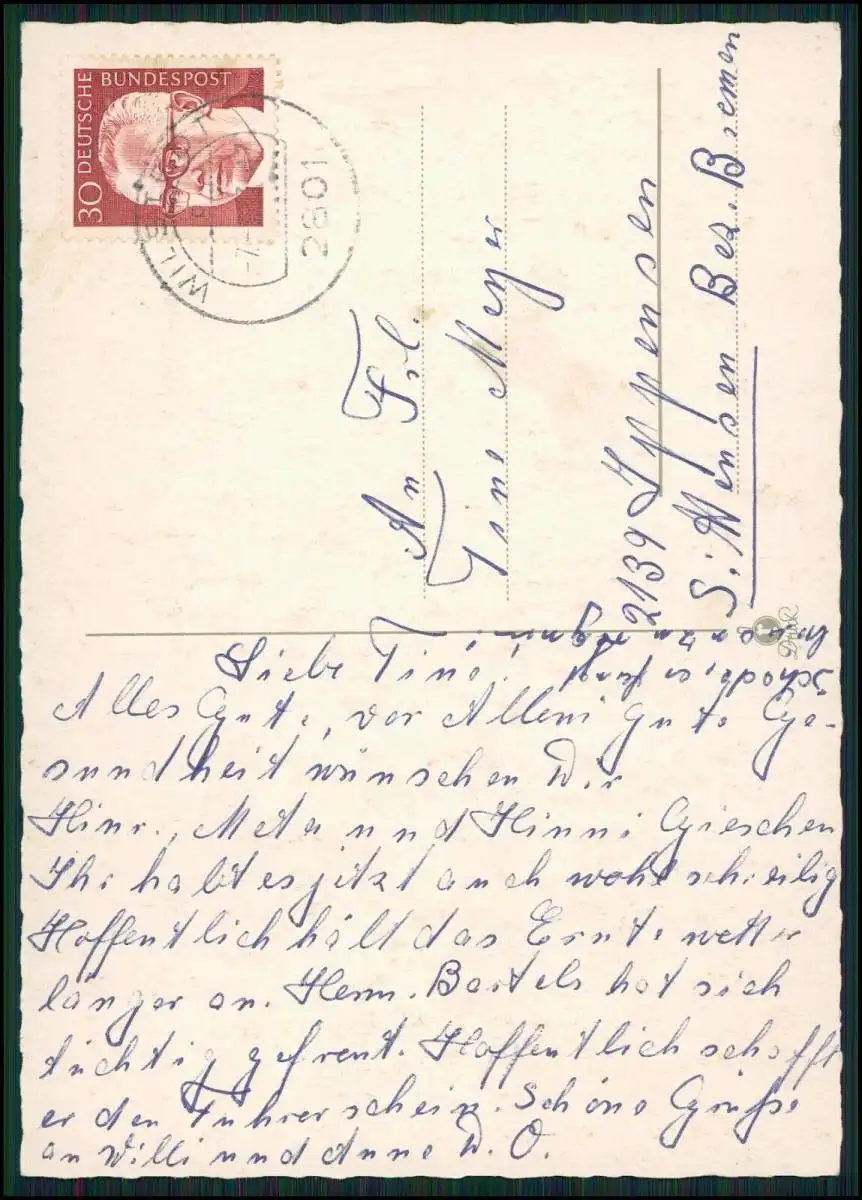 30 DEUTSCHE BUNDESPOST
2801
An Frl.
Tine Meyer
2139 Ippensen
Bez. Bremen
Druck
Liebe Tine!
Alles Gute, vor Allem gute Ge-
sundheit wünschen Wir
Hinr., Meta und Hinni Gieschen
Ihr habt es jetzt auch wohl sehr eilig
Hoffentlich hält das Erntewetter
länger an. Herm. Bartels hat sich
tüchtig gefreut. Hoffentlich schafft
er den Führerschein. Schöne Grüße
an Willi und Anne D. O.